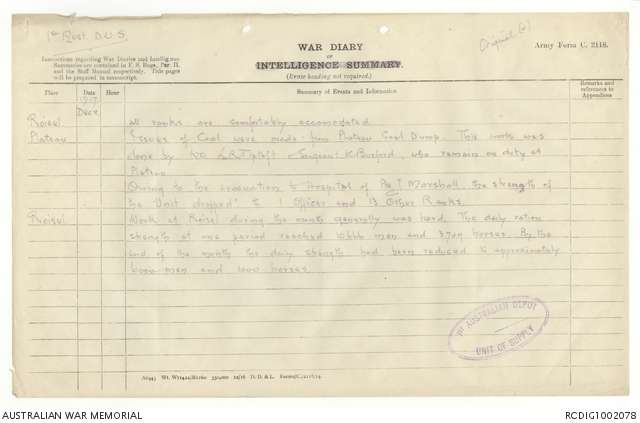 1st Aust D.U.S.
Original (2)
WAR DIARY
OF
INTELLIGENCE SUMMARY.
(Erase heading not required.)
Army Form C. 2118.
Instructions regarding War Diaries and Intelligence
Summaries are contained in F. S. Regs., Part II.
and the Staff Manual respectively. Title pages
will be prepared in manuscript.
Place Date Hour Summary of Events and Information Remarks and references to Appendices
1917
Decr
Roisel all ranks are comfortably accomodated.
Plateau Issues of Coal were made from Plateau Coal Dump. This work was
done by Sergeant who remain on duty at
Plateau
Owing to the evacuation to hospital of Marshall, the strength of
the Unit dropped to 1 Officer and 13 Other Ranks.
Roisel Work at Roisel during the month generally was hard. The daily ration
strength at one period reached men and horses. By the
end of the month the daily strength had been reduced to approximately
men and horses.
1st AUSTRALIAN DEPOT
UNIT OF SUPPLY
AUSTRALIAN WAR MEMORIAL
RCDIG1002078